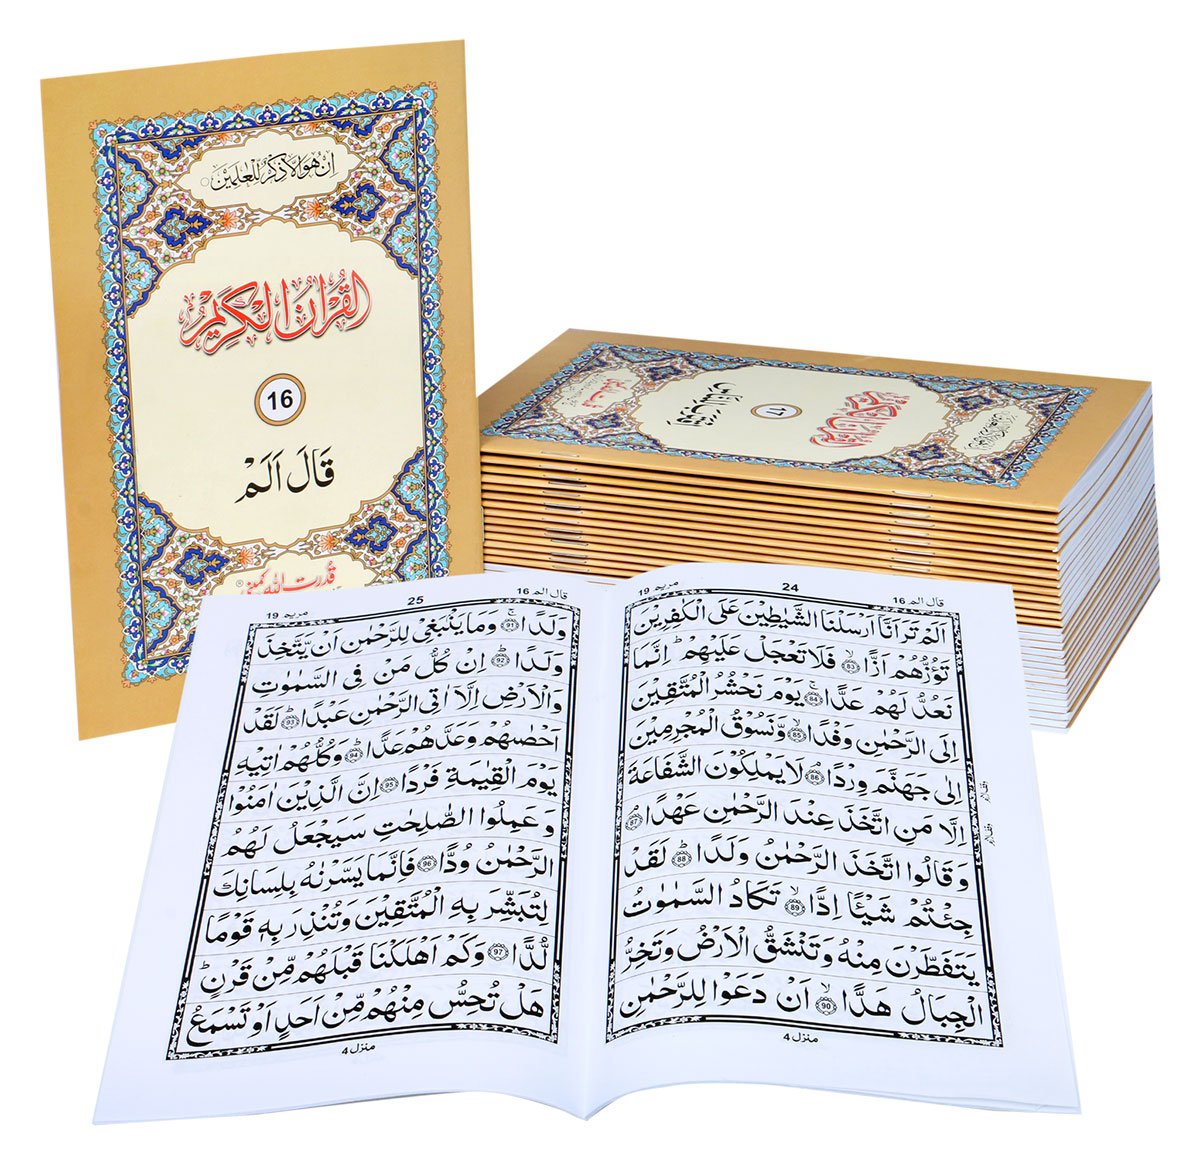 اِنْ هُوَ اِلَّا ذِكْرٌ لِّلْعٰلَمِيْنَ
القُرْاٰنُ الْكَرِيْمُ
16
قَالَ اَلَمْ
قُدرت اللّٰه كمپنى
17
قال الم 16
24
مريم 19
اَلَمْ تَرَ اَنَّاۤ اَرْسَلْنَا الشَّيٰطِيْنَ عَلَى الْكٰفِرِيْنَ
تَؤُزُّهُمْ اَزًّا ۙ 83 فَلَا تَعْجَلْ عَلَيْهِمْ ؕ اِنَّمَا
نَعُدُّ لَهُمْ عَدًّا ۚ 84 يَوْمَ نَحْشُرُ الْمُتَّقِيْنَ
اِلَى الرَّحْمٰنِ وَفْدًا ۙ 85 وَّنَسُوْقُ الْمُجْرِمِيْنَ
اِلٰى جَهَنَّمَ وِرْدًا ۘ 86 لَا يَمْلِكُوْنَ الشَّفَاعَةَ
اِلَّا مَنِ اتَّخَذَ عِنْدَ الرَّحْمٰنِ عَهْدًا ۘ 87
وَقَالُوا اتَّخَذَ الرَّحْمٰنُ وَلَدًا ؕ 88 لَقَدْ
جِئْتُمْ شَيْـًٔا اِدًّا ۙ 89 تَكَادُ السَّمٰوٰتُ
يَتَفَطَّرْنَ مِنْهُ وَتَنْشَقُّ الْاَرْضُ وَتَخِرُّ
الْجِبَالُ هَدًّا ۙ 90 اَنْ دَعَوْا لِلرَّحْمٰنِ
منزل 4
قال الم 16
25
مريم 19
وَلَدًا ۚ 91 وَمَا يَنْۢبَغِيْ لِلرَّحْمٰنِ اَنْ يَّتَّخِذَ
وَلَدًا ؕ 92 اِنْ كُلُّ مَنْ فِي السَّمٰوٰتِ
وَالْاَرْضِ اِلَّاۤ اٰتِي الرَّحْمٰنِ عَبْدًا ؕ 93 لَقَدْ
اَحْصٰىهُمْ وَعَدَّهُمْ عَدًّا ؕ 94 وَكُلُّهُمْ اٰتِيْهِ
يَوْمَ الْقِيٰمَةِ فَرْدًا 95 اِنَّ الَّذِيْنَ اٰمَنُوْا
وَعَمِلُوا الصّٰلِحٰتِ سَيَجْعَلُ لَهُمُ
الرَّحْمٰنُ وُدًّا 96 فَاِنَّمَا يَسَّرْنٰهُ بِلِسَانِكَ
لِتُبَشِّرَ بِهِ الْمُتَّقِيْنَ وَتُنْذِرَ بِهٖ قَوْمًا
لُّدًّا 97 وَكَمْ اَهْلَكْنَا قَبْلَهُمْ مِّنْ قَرْنٍ ؕ
هَلْ تُحِسُّ مِنْهُمْ مِّنْ اَحَدٍ اَوْ تَسْمَعُ
منزل 4